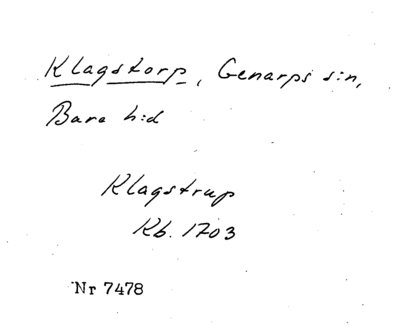 Klagstorp, Genarps s:n,
Bara h:d
Klagstrup
Kb. 1703
Nr 7478